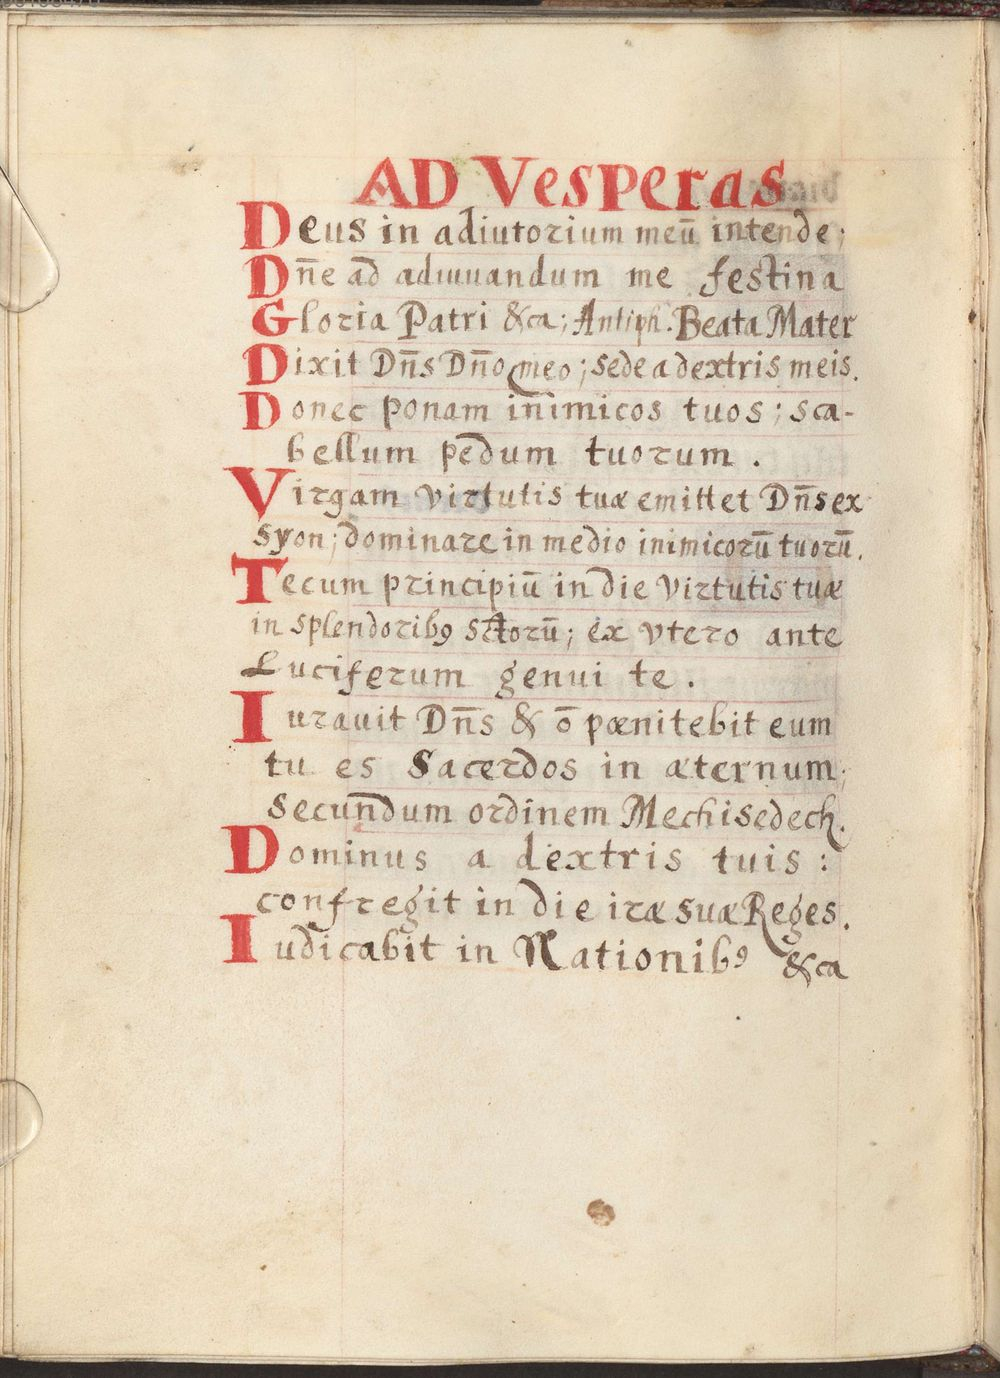 AD VesPeras
Deus in adiutorium meū intende;
Dn̄e ad adiuuandum me festina
Gloria Patri &ca; Antiph. Beata Mater
Dixit Dn̄s Dn̄o meo; sede a dextris meis.
Donec ponam inimicos tuos; sca-
bellum pedum tuorum.
Virgam virtutis tuæ emittet Dn̄s ex
syon; dominare in medio inimicorū tuorū.
Tecum principiū in die Virtutis tuæ
in splendoribꝰ sctorū; ex vtero ante
Luciferum genui te.
Iurauit Dn̄s & ō pænitebit eum
tu es Sacerdos in æternum;
secundum ordinem Mechisedech.
Dominus a dextris tuis:
confregit in die iræ suæ Reges.
Iudicabit in Nationibꝰ &ca